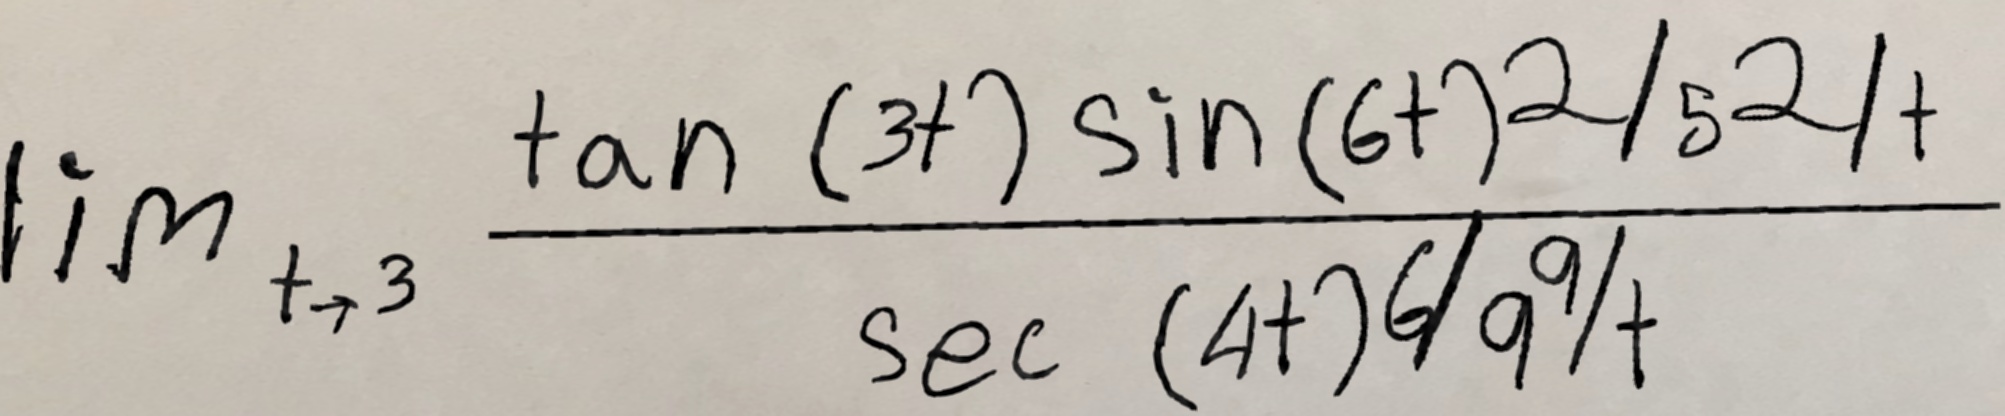 lim t→3 tan (3t) sin (6t)^2/5^2/t
sec (4t)^6/9^9/t